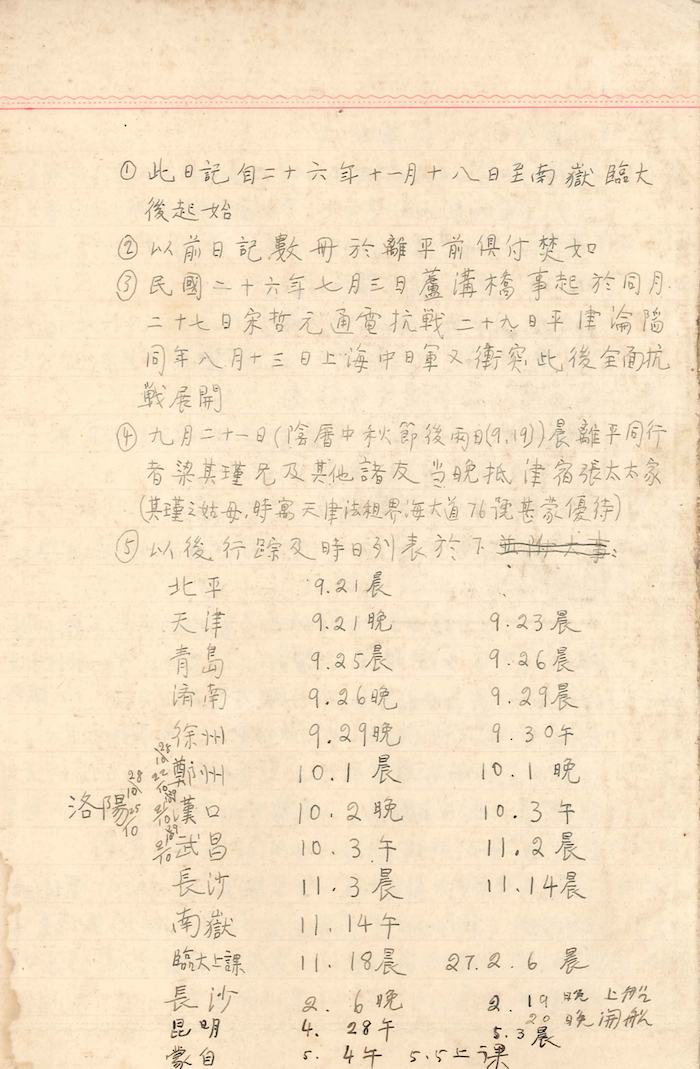 ① 此日記自二十六年十一月十八日至南嶽臨大
後起始
② 以前日記數冊於離平前俱付焚如
③ 民國二十六年七月三日蘆溝橋事起於同月
二十七日宋哲元通電抗戰二十九日平津淪陷
同年八月十三日上海中日軍又衝突此後全面抗
戰展開
④ 九月二十一日(陰曆中秋節後兩日(9.19))晨離平同行
者梁其瑾兄及其他諸友當晚抵津宿張太太家
(其瑾之姑母,時寓天津法租界海大道76號甚蒙優待)
⑤ 以後行踪及時日列表於下
北平 9.21晨
天津 9.21晚 9.23晨
青島 9.25晨 9.26晨
濟南 9.26晚 9.29晨
徐州 9.29晚 9.30午
鄭州 10.1 晨 10.1 晚
洛陽 漢口 10.2 晚 10.3 午
武昌 10.3 午 11.2 晨
長沙 11.3 晨 11.14晨
南嶽 11.14午
臨大上課 11.18晨 27.2.6 晨
長沙 2.6晚 2.19 晚 上船
20 晚 開船
昆明 4. 28午 5.3晨
蒙自 5. 4午 5.5上課